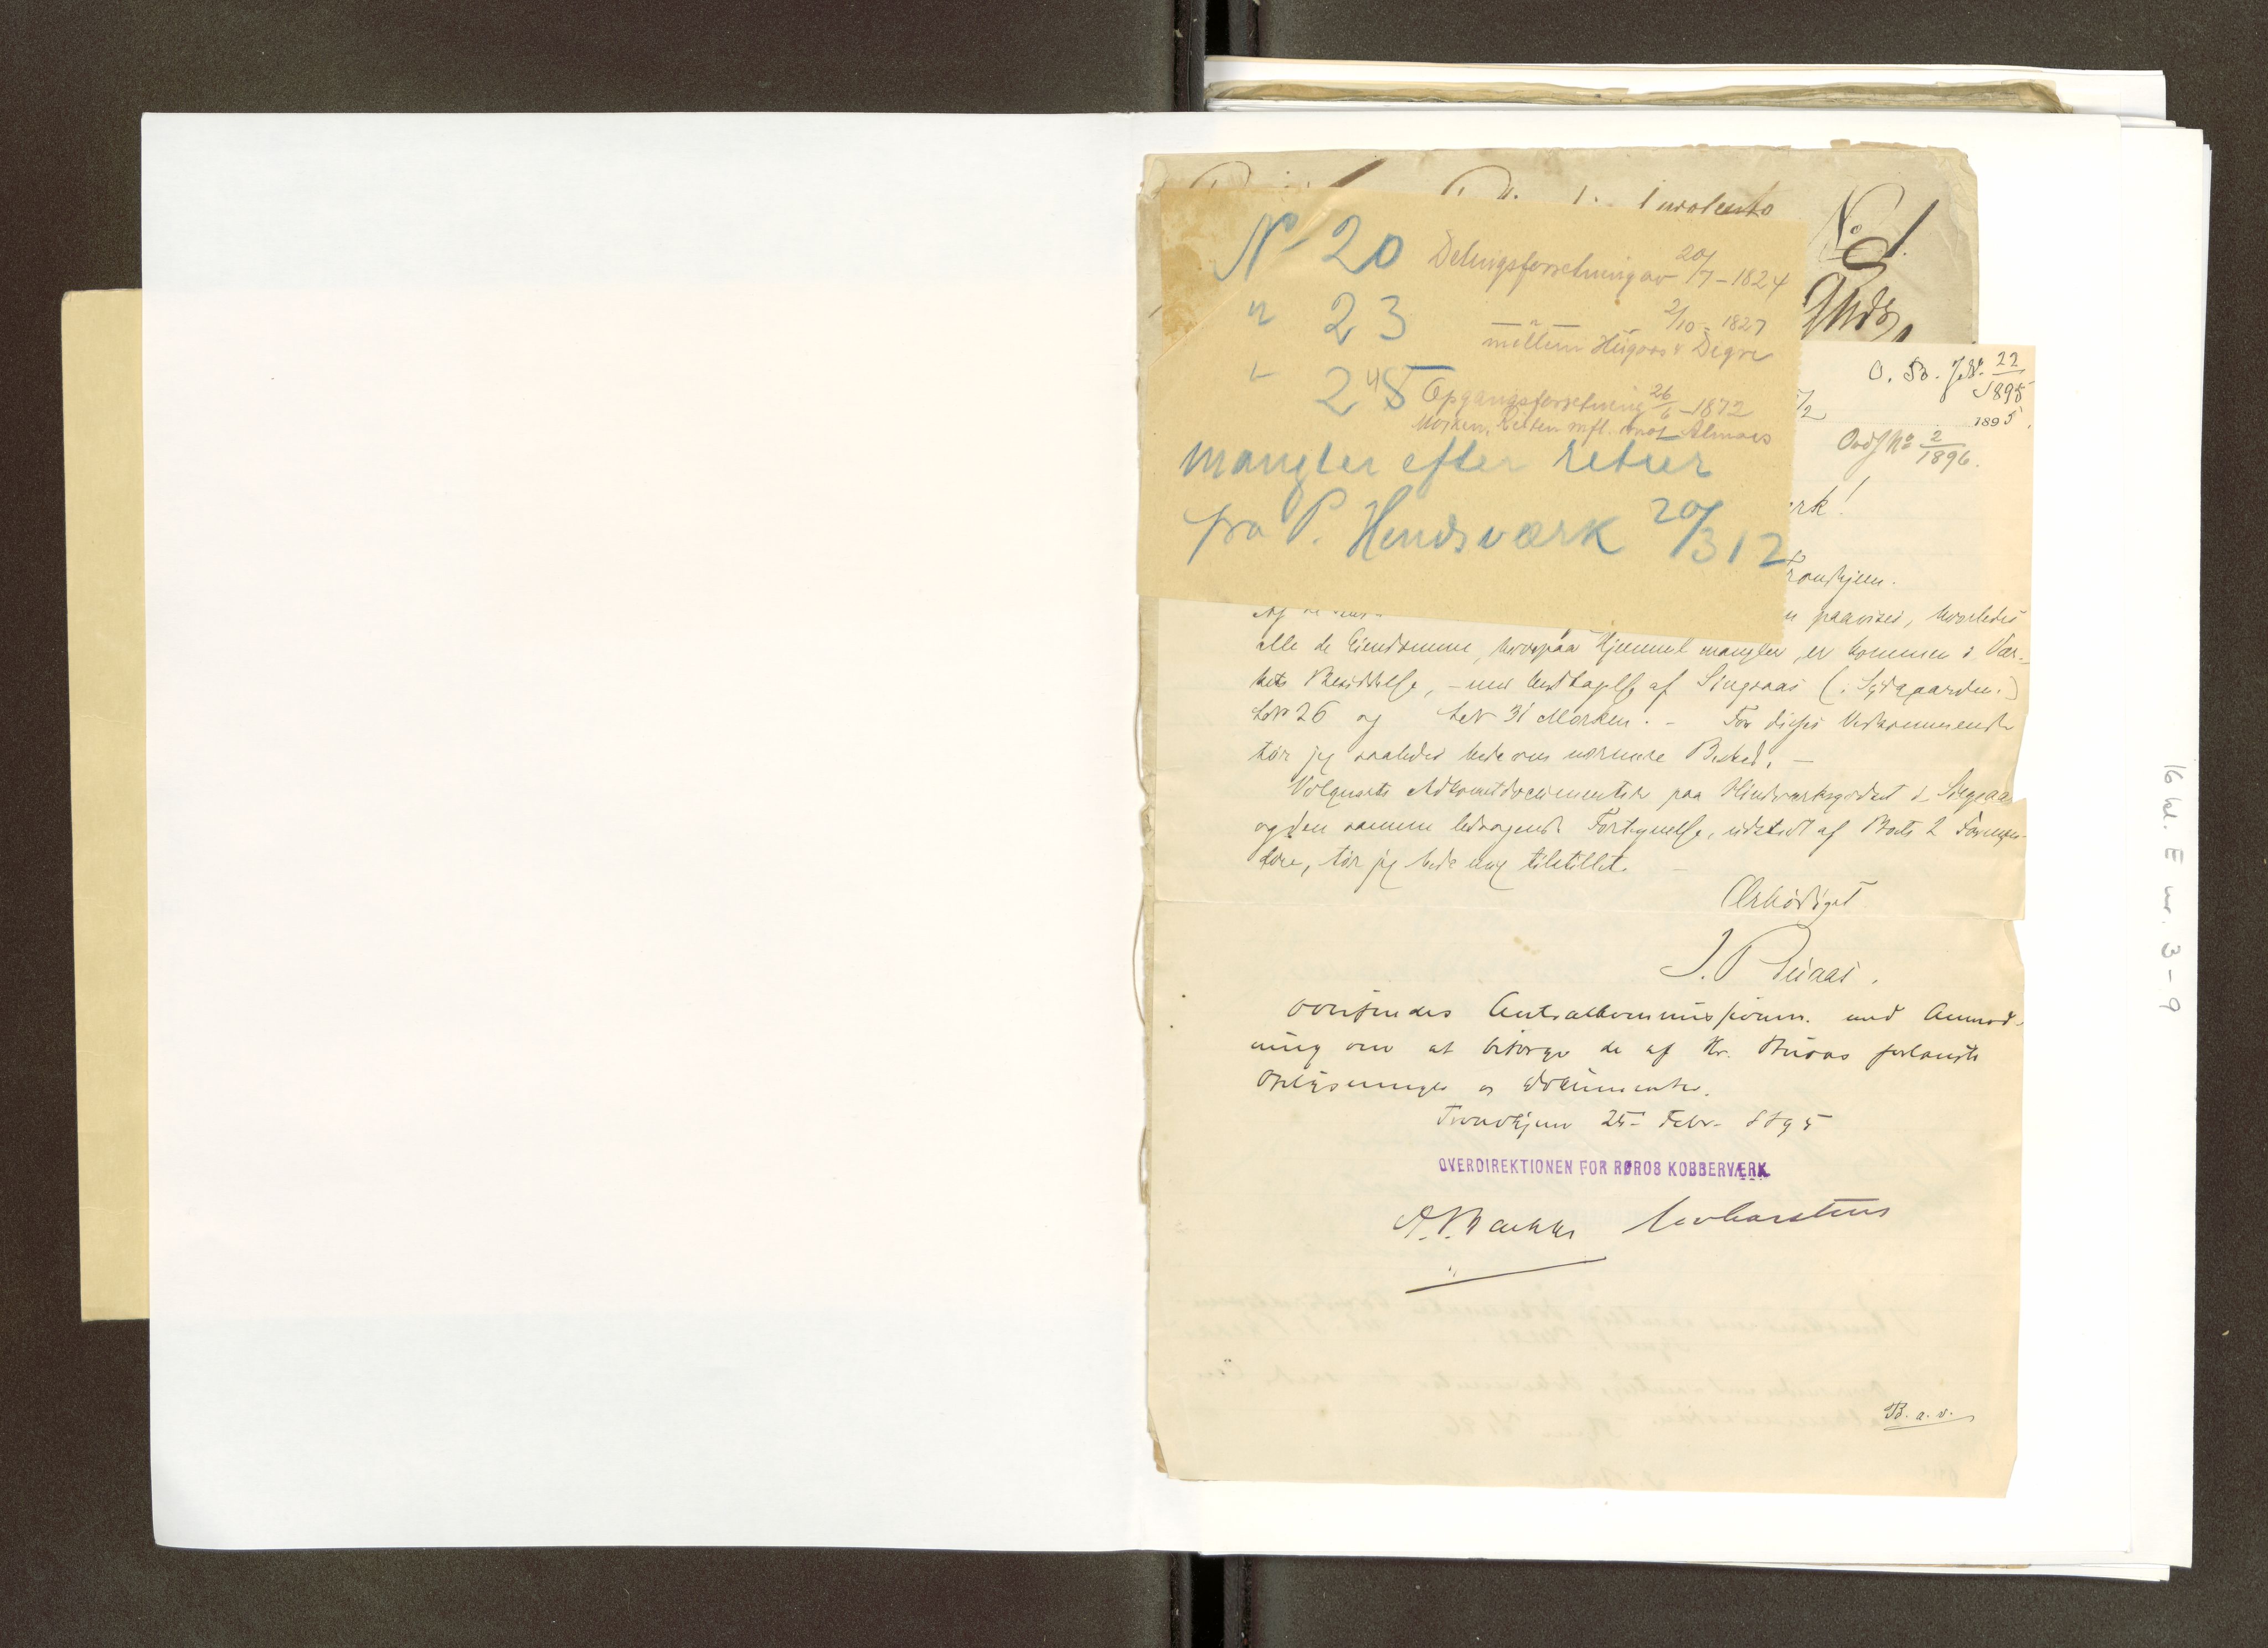 No 1.
N 20 Delingsforretning av 20/7 - 1824
" 23 —"— 2/10 - 1827
mellem Heigaas & Digre
" 24 Opgangsforretning 26/6 - 1872
Morken, Reiten mfl. mot Almaas
mangler efter retur
fra P. Hindsværk 20/3 12
O. D. J.No. 22/1895
1895.
Ovds No 2/1896.
ærk!
Trondhjem.
paavises, hvorledes
alle de Eiendomme, hvorpaa Hjemmel mangler, er kommen i Vær-
kets Besiddelse, - med Undtagelse af Singsaas (: Sydgaarden:)
LNr 26 og LNr 31 Morken. - For disses Vedkommende
tør jeg saaledes bede om nærmere Besked. -
Velgnsets Adkomstdocumenter paa Hindværksgodset i Singsaas
og den samme ledsagende Fortegnelse, udstedt af Boets 2 Formyn-
dere, tør jeg bede mig tilstillet. -
Ærbødigst
J. P. Buaas.
Oversendes Centralkommissionen med Anmod-
ning om at besørge de af Hr. Buaas forlangte
Oplysninger og Dokumenter.
Trondhjem 25 Febr. 1895
OVERDIREKTIONEN FOR RØROS KOBBERVÆRK
B. a. v.
16 kl. E nr. 3-9